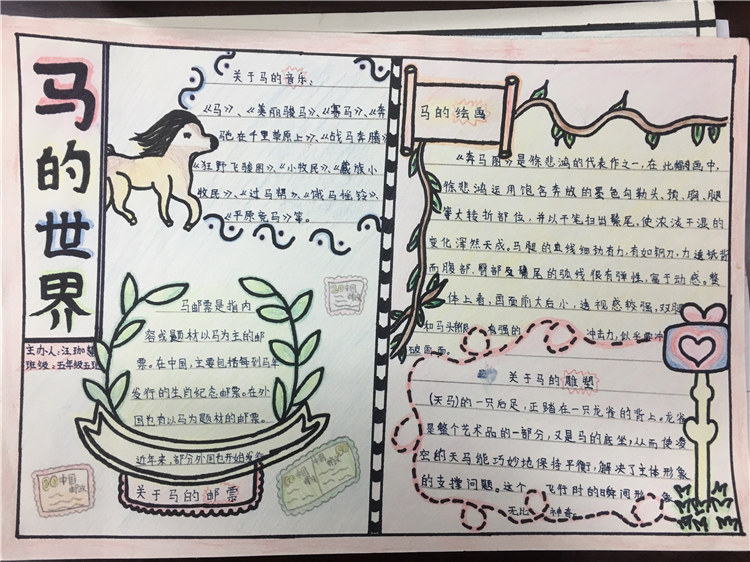 马的世界
主办人:汪珈
班级:五年级五班
关于马的音乐、
《马》、《美丽骏马》、《赛马》、《奔
驰在千里草原上》、《战马奔腾》
《狂野飞骏图》、《小牧民》、《藏族小
牧民》、《过马帮》、《饿马摇铃》、
《平原竞马》等。
马邮票是指内
容或题材以马为主的邮
票。在中国,主要包括每到马年
发行的生肖纪念邮票。在外
国也有以马为题材的邮票。
近年来,部分外国也开始发
关于马的邮票
中国邮政
马的绘画
《奔马图》是徐悲鸿的代表作之一,在此幅画中,
徐悲鸿运用饱含奔放的墨色勾勒头、颈、胸、腿
等大转折部位,并以干笔扫出鬃尾,使浓淡干湿的
变化浑然天成。马腿的直线细劲有力,有如钢刀,力透纸背
而腹部、臀部及鬃尾的弧线很有弹性,富于动感。整
体上看,画面前大后小,透视感较强,双腿
和马头有很强的冲击力,似乎要冲
破画面。
关于马的雕塑
(天马)的一只后足,正踏在一只龙雀的背上。龙雀
是整个艺术品的一部分,又是马的底座,从而使凌
空的天马能巧妙地保持平衡,解决了主体形象
的支撑问题。这个 飞行时的瞬间形象
无比 神奇。